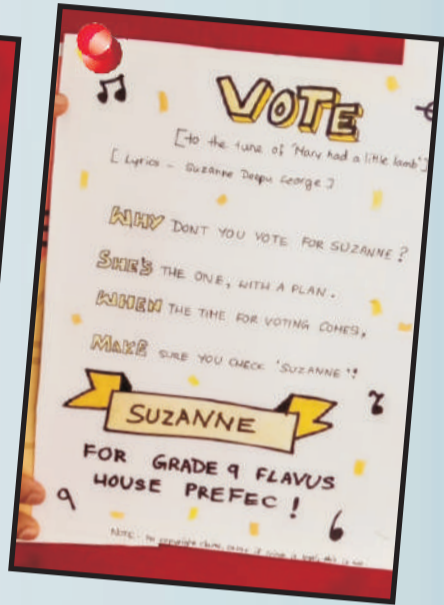 VOTE
[to the tune of 'Mary had a little lamb']
[Lyrics - Suzanne Deepu George]
WHY DONT YOU VOTE FOR SUZANNE?
SHE'S THE ONE, WITH A PLAN.
WHEN THE TIME FOR VOTING COMES,
MAKE SURE YOU CHECK 'SUZANNE'!
SUZANNE
FOR GRADE 9 FLAVUS
HOUSE PREFEC!
NOTE:- No copyright